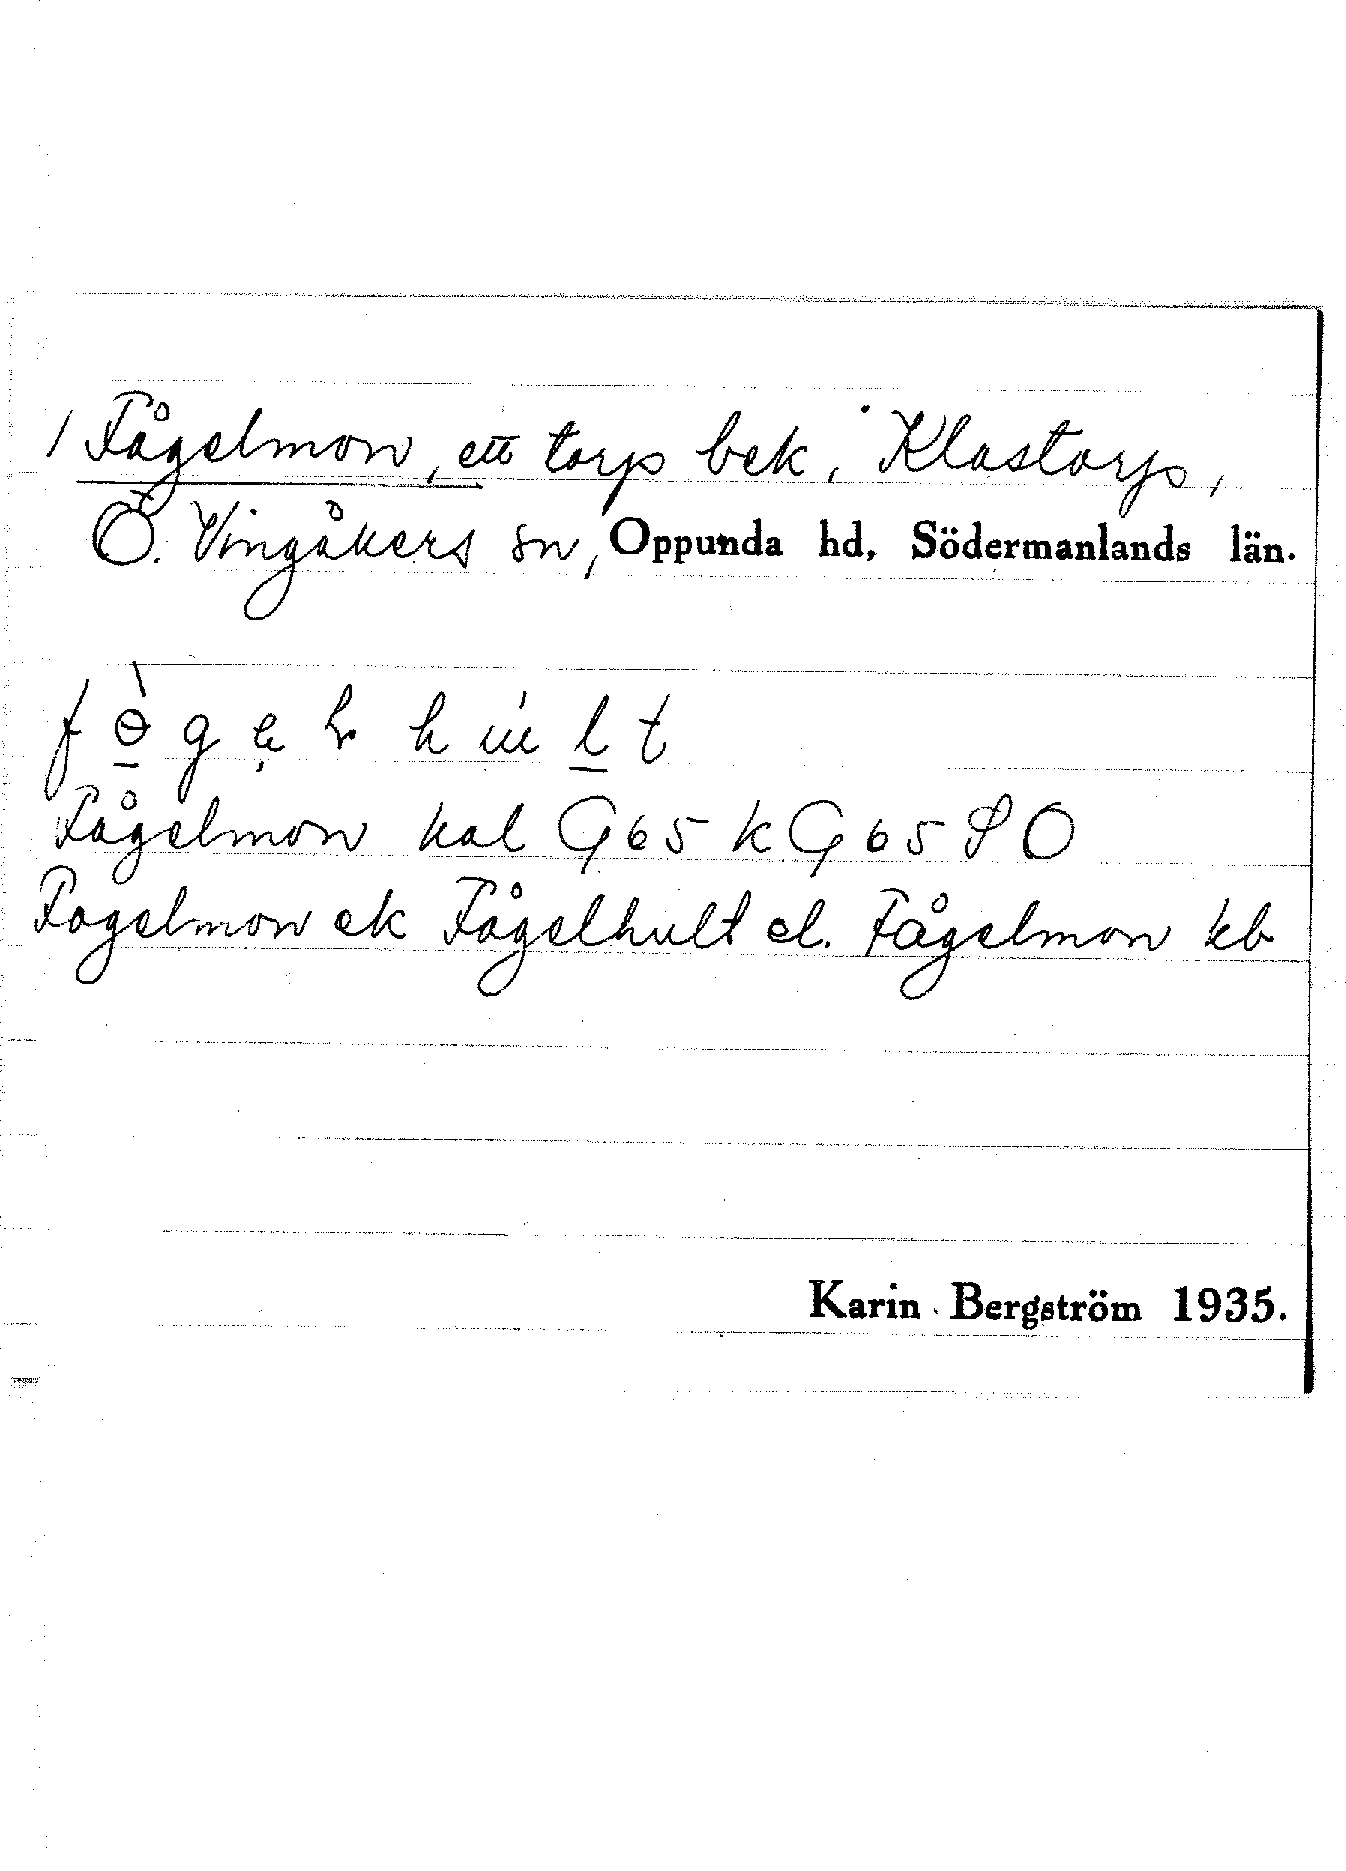 / Fågelmon, ett torp bek. Klastorp,
Ö. Vingåkers sn, Oppunda hd, Södermanlands län.
fɵ̀gel hult
Fågelmon kal G 65 k G 65 S O
Fogelmon ek Fågelhult el. Fågelmon kb
Karin Bergström 1935.